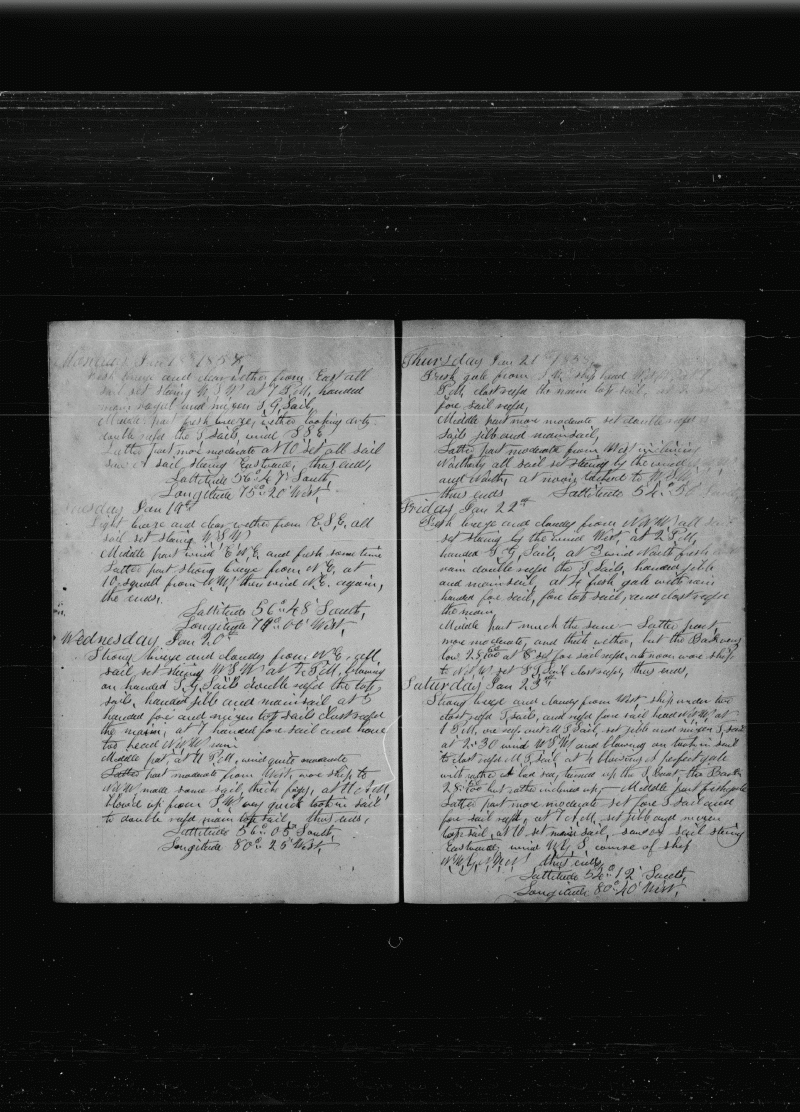 Monday Jan 1 1858
Fresh breeze and clear wether from East all
sail set stering W.S.W. at 7 P.M. handed
main royal and mizen T,G,Sail,
Middle part fresh breeze, wether looking dirty.
double reefd the T,Sails, wind S S E
Latter part more moderate at 10 set all sail
saw a sail, stering Eastward, thus ends,
Lattitude 56° 47' South,
Longitude 75° 20' West,
Tuesday Jan 19th
Light breeze and clear wether from E,S,E, all
sail set stering W,S,W
Middle part wind E,N,E, and fresh some time
Latter part strong breeze from N,E, at
10 squall from N,W, then wind N,E, again,
the ends.
Lattitude 56° 48' South,
Longitude 79° 00' West,
Wednesday Jan 20th
Strong breeze and cloudy from N,E, all
sail, set stering W,S,W, at 7 P,M, blowing
on handed T,G,Sails double reefd the top,
sails, handed jibb and mainsail at 5
handed fore and mizen top sails close reefd
the main, at 7 handed fore sail and hove
too head N,W, rain
Middle part, at 11 P,M, wind quite moderate
Latter part moderate from West, wore ship to
N,W, made some sail, thick foggy, at 11 A,M,
blowed up from S,W, very quick took in sail
to double reefd main top sail, thus ends,
Lattitude 56° 05' South,
Longitude 80° 25' West,
Thursday Jan 21 185
Fresh gale from S,W, ship head
P,M, close reefd the main top sail,
fore sail reefd,
Middle part more moderate set double reefd
sails jibb and mainsail,
Latter part moderate from West inclining
Northerly all sail set stering by the wind
and North, at noon tacked to W,S,W,
thus ends Lattitude 54° 50' South
Friday Jan 22nd
Fresh breeze and cloudy from N,N,W, all sail
set stering by the wind West, at 2 P,M,
handed T,G,Sails, at 3 wind North fresh
rain double reefd the T,Sails, handed jibb
and mainsail, at 4 fresh gale with rain
handed fore sail, fore top sail, and close reefd
the main
Middle part much the same — Latter part
more moderate, and thick wether, but the Bar very
low 28.60 at 8 set fore sail reefd, at noon wore ship
to N,W, set T,Sail close reefd, thus ends,
Saturday Jan 23rd
Strong breeze and cloudy from West, ship under two
close reefd T,Sails, and reefd fore sail head N,W, at
1 P,M, one reef out M,T,Sail, set jibb and mizen T,Sail
at 2:30 wind W,S,W, and blowing on took in sail
to close reefd M,T,Sail, at 4 blowing a perfect gale
with rather a bad sea, turned up the Boat, the Bar in
28.60 but rather inclined up, — Middle part fresh gale
Latter part more moderate set fore T,Sail and
fore sail reefd, at 7 A,M, set jibb and mizen
top sail, at 10 set main sail, saw a sail stering
Eastward, wind W,S, course of ship
N,W, thus ends,
Lattitude 54° 12' South,
Longitude 80° 40' West,